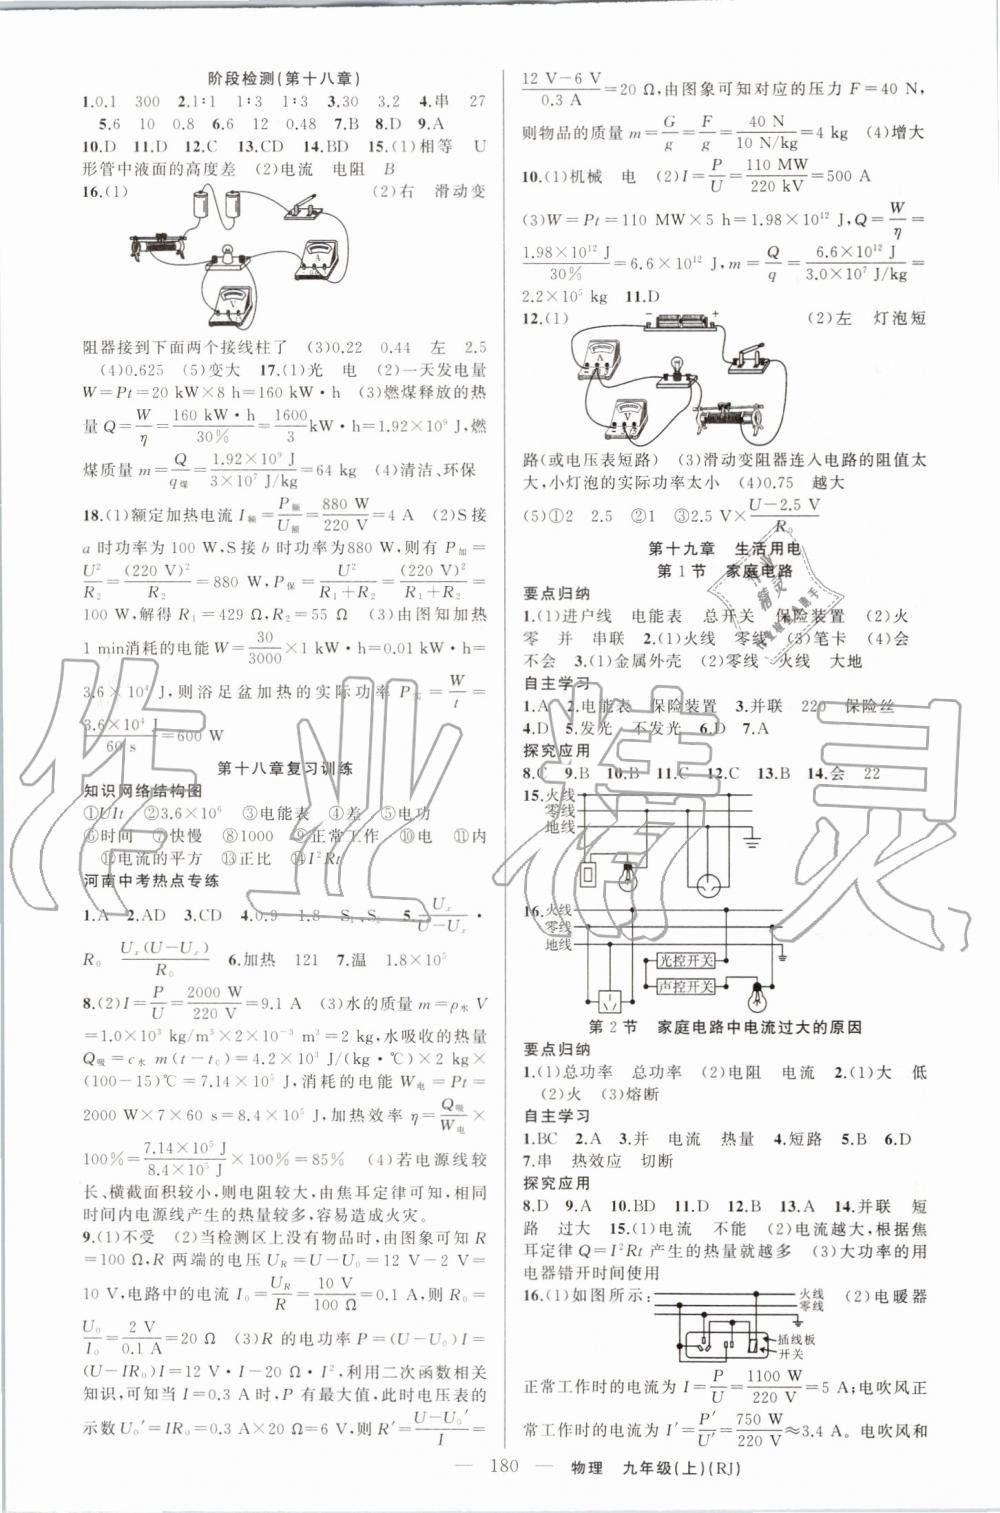 阶段检测(第十八章)
1.0.1 300 2.1∶1 1∶3 1∶3 3.30 3.2 4.串 27
5.6 10 0.8 6.6 12 0.48 7.B 8.D 9.A
10.D 11.D 12.C 13.CD 14.BD 15.(1)相等 U
形管中液面的高度差 (2)电流 电阻 B
16.(1) (2)右 滑动变
A
V
阻器接到下面两个接线柱了 (3)0.22 0.44 左 2.5
(4)0.625 (5)变大 17.(1)光 电 (2)一天发电量
W=Pt=20 kW×8 h=160 kW·h (3)燃煤释放的热
量 Q=W/η=160 kW·h/30%=1600/3 kW·h=1.92×10⁹ J,燃
煤质量 m=Q/q煤=1.92×10⁹ J/3×10⁷ J/kg=64 kg (4)清洁、环保
18.(1)额定加热电流 I额=P额/U额=880 W/220 V=4 A (2)S接
a 时功率为 100 W,S接 b 时功率为880 W,则有 P加=
U²/R₂=(220 V)²/R₂=880 W,P保=U²/R₁+R₂=(220 V)²/R₁+R₂=
100 W,解得 R₁=429 Ω,R₂=55 Ω (3)由图知加热
1 min消耗的电能 W=30/3000×1 kW·h=0.01 kW·h=
3.6×10⁴ J,则浴足盆加热的实际功率 P实=W/t=
3.6×10⁴ J/60 s=600 W
第十八章复习训练
知识网络结构图
①UIt ②3.6×10⁶ ③电能表 ④差 ⑤电功
⑥时间 ⑦快慢 ⑧1000 ⑨正常工作 ⑩电 ⑪内
⑫电流的平方 ⑬正比 ⑭I²Rt
河南中考热点专练
1.A 2.AD 3.CD 4.0.9 1.8 S₁、S₂ 5.Uₓ/U-Uₓ·
R₀ Uₓ(U-Uₓ)/R₀ 6.加热 121 7.温 1.8×10⁵
8.(2)I=P/U=2000 W/220 V=9.1 A (3)水的质量 m=ρ水 V
=1.0×10³ kg/m³×2×10⁻³ m³=2 kg,水吸收的热量
Q吸=c水 m(t-t₀)=4.2×10³ J/(kg·℃)×2 kg×
(100-15)℃=7.14×10⁵ J,消耗的电能 W电=Pt=
2000 W×7×60 s=8.4×10⁵ J,加热效率 η=Q吸/W电×
100%=7.14×10⁵ J/8.4×10⁵ J×100%=85% (4)若电源线较
长、横截面积较小,则电阻较大,由焦耳定律可知,相同
时间内电源线产生的热量较多,容易造成火灾。
9.(1)不受 (2)当检测区上没有物品时,由图象可知 R
=100 Ω,R 两端的电压 U_R=U-U₀=12 V-2 V=
10 V,电路中的电流 I₀=U_R/R=10 V/100 Ω=0.1 A,则 R₀=
U₀/I₀=2 V/0.1 A=20 Ω (3)R 的电功率 P=(U-U₀)I=
(U-IR₀)I=12 V·I-20 Ω·I²,利用二次函数相关
知识,可知当 I=0.3 A时,P 有最大值,此时电压表的
示数 U₀′=IR₀=0.3 A×20 Ω=6 V,则 R′=U-U₀′/I=
12 V-6 V/0.3 A=20 Ω,由图象可知对应的压力 F=40 N,
则物品的质量 m=G/g=F/g=40 N/10 N/kg=4 kg (4)增大
10.(1)机械 电 (2)I=P/U=110 MW/220 kV=500 A
(3)W=Pt=110 MW×5 h=1.98×10¹² J,Q=W/η=
1.98×10¹² J/30%=6.6×10¹² J,m=Q/q=6.6×10¹² J/3.0×10⁷ J/kg=
2.2×10⁵ kg 11.D
12.(1) (2)左 灯泡短
− +
A
V
路(或电压表短路) (3)滑动变阻器连入电路的阻值太
大,小灯泡的实际功率太小 (4)0.75 越大
(5)①2 2.5 ②1 ③2.5 V×U-2.5 V/R₀
第十九章 生活用电
第1节 家庭电路
要点归纳
1.(1)进户线 电能表 总开关 保险装置 (2)火
零 并 串联 2.(1)火线 零线 (3)笔卡 (4)会
不会 3.(1)金属外壳 (2)零线 火线 大地
自主学习
1.A 2.电能表 保险装置 3.并联 220 保险丝
4.D 5.发光 不发光 6.D 7.A
探究应用
8.C 9.B 10.B 11.C 12.C 13.B 14.会 22
15.火线
零线
地线
16.火线
零线
地线
光控开关
声控开关
第2节 家庭电路中电流过大的原因
要点归纳
1.(1)总功率 总功率 (2)电阻 电流 2.(1)大 低
(2)火 (3)熔断
自主学习
1.BC 2.A 3.并 电流 热量 4.短路 5.B 6.D
7.串 热效应 切断
探究应用
8.D 9.A 10.BD 11.D 12.B 13.A 14.并联 短
路 过大 15.(1)电流 不能 (2)电流越大,根据焦
耳定律 Q=I²Rt 产生的热量就越多 (3)大功率的用
电器错开时间使用
16.(1)如图所示: (2)电暖器
火线
零线
插线板
开关
正常工作时的电流为 I=P/U=1100 W/220 V=5 A;电吹风正
常工作时的电流为 I′=P′/U′=750 W/220 V≈3.4 A,电吹风和
— 180 — 物理 九年级(上)(RJ)
作业精灵